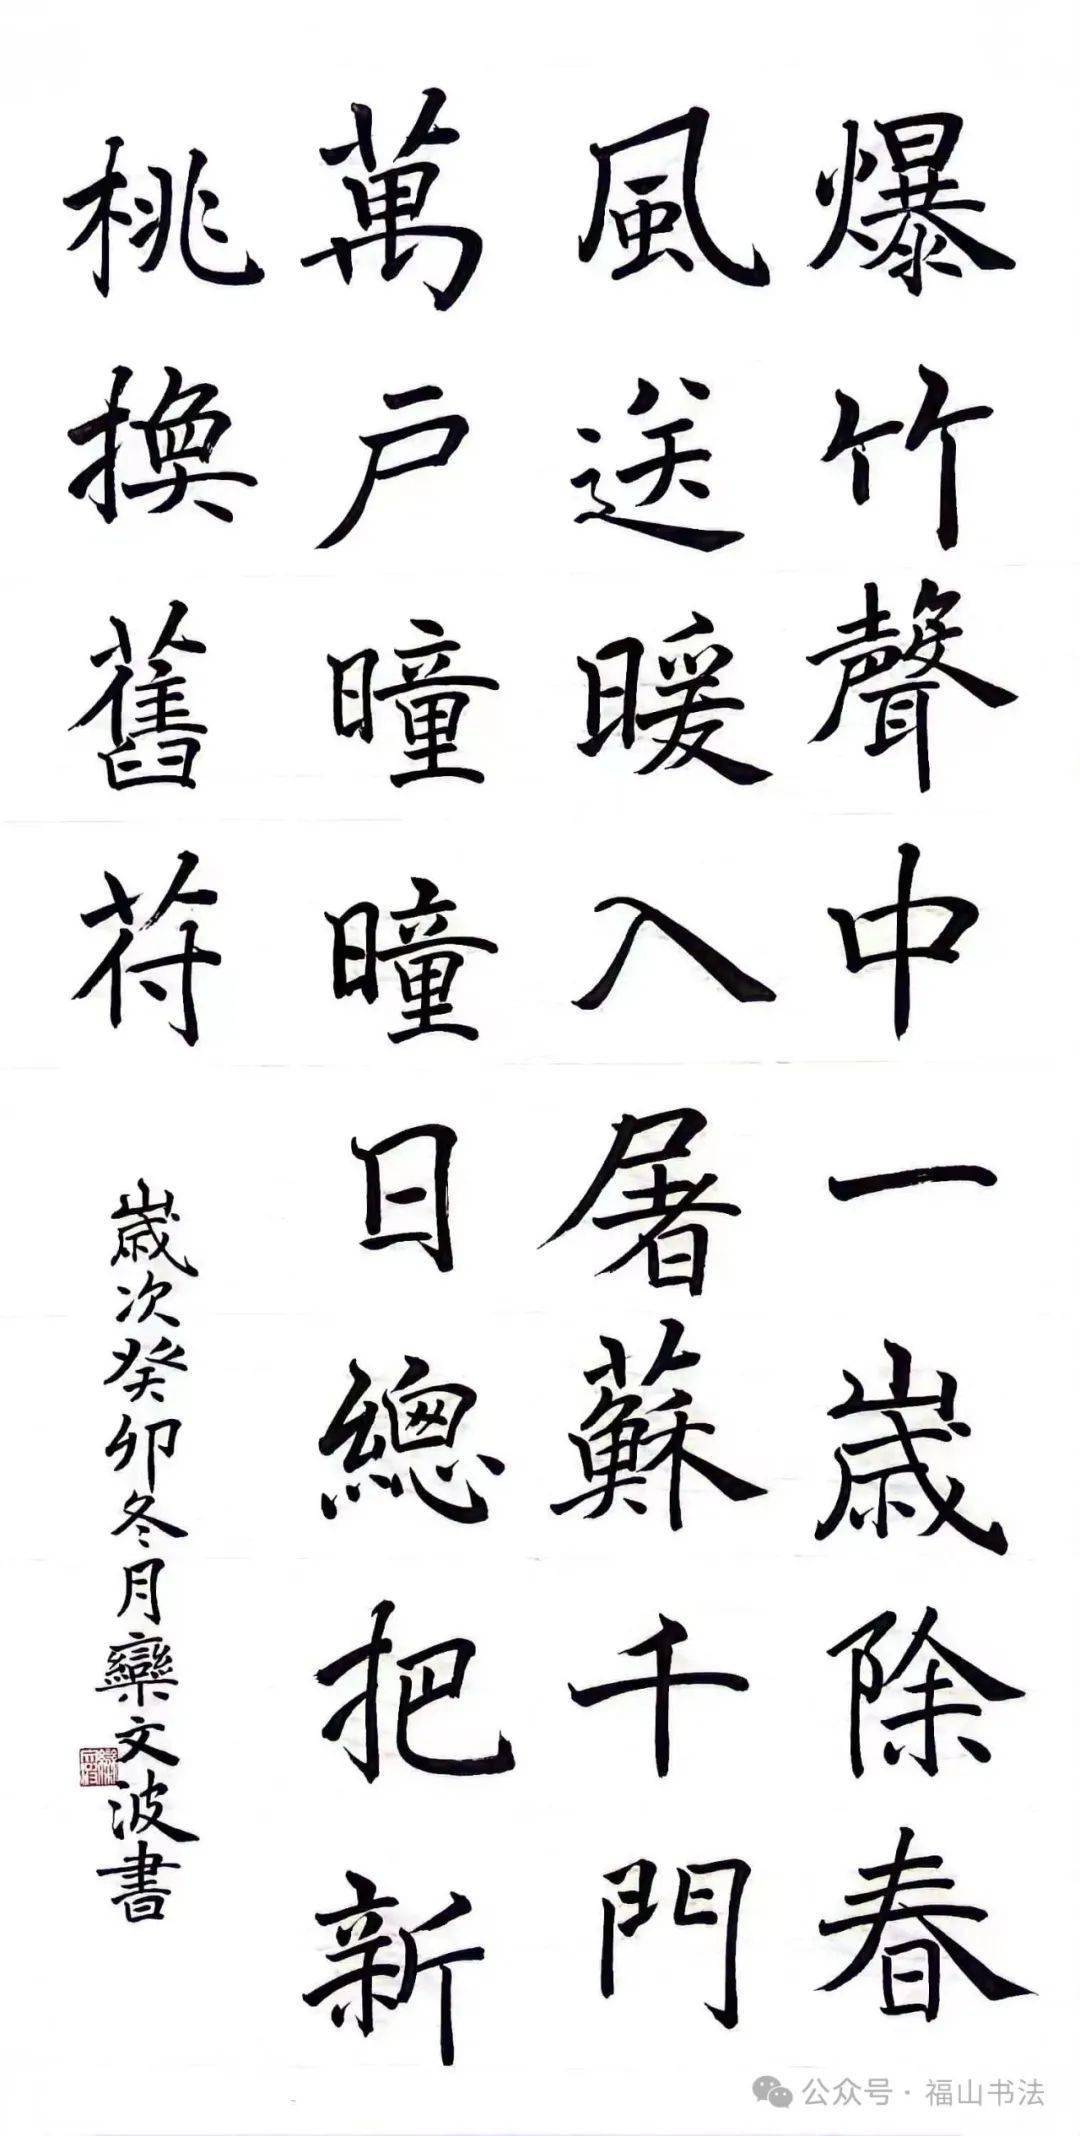 爆竹聲中一歲除春
風送暖入屠蘇千門
萬戶曈曈日總把新
桃換舊苻
歲次癸卯冬月欒文波書
公众号·福山书法